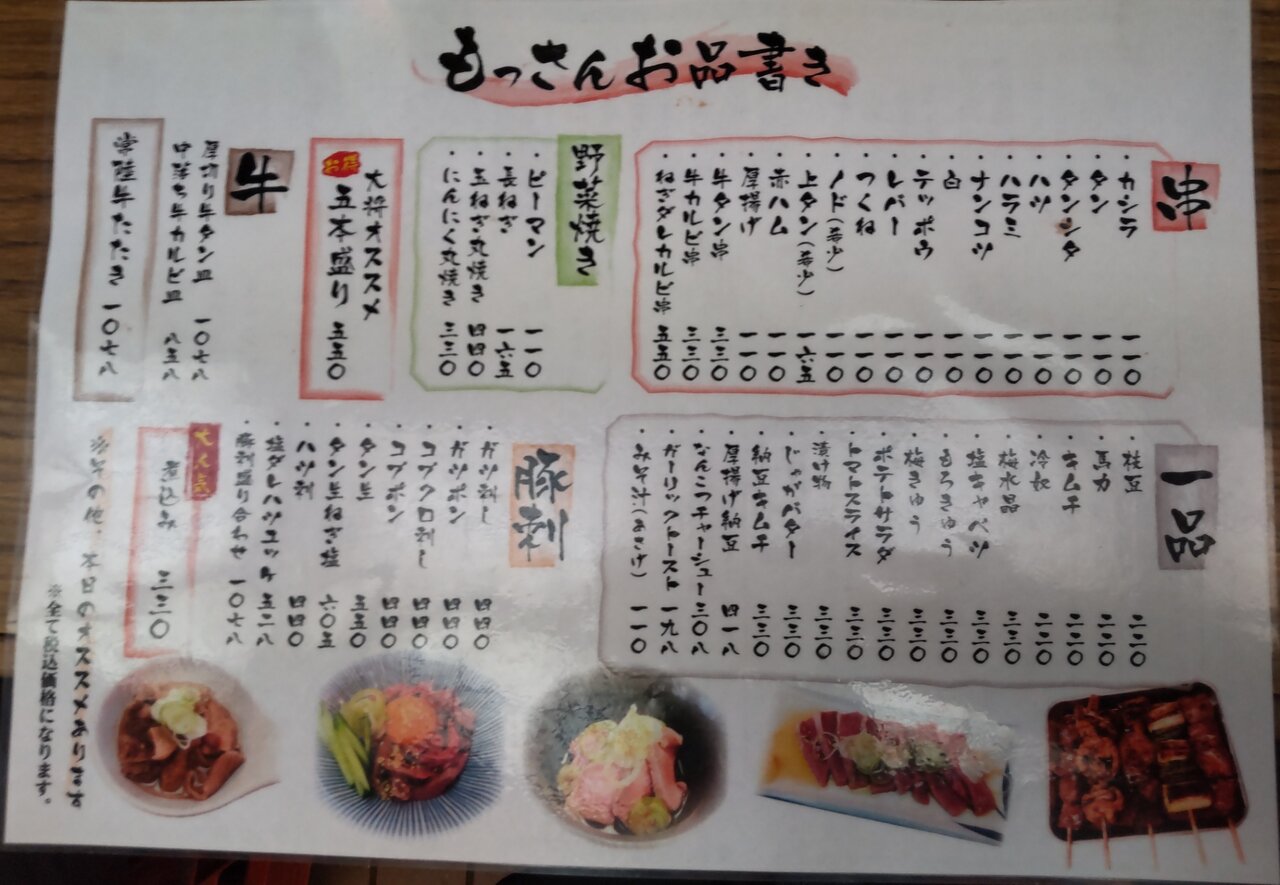 もっさんお品書き
串
・カシラ 一一〇
・タン 一一〇
・タンシタ 一一〇
・ハツ 一一〇
・ハラミ 一一〇
・ナンコツ 一一〇
・白 一一〇
・テッポウ 一一〇
・レバー 一一〇
・つくね 一一〇
・ノド(希少) 一一〇
・上タン(希少) 一六五
・赤ハム 一一〇
・厚揚げ 一一〇
・牛タン串 三三〇
・牛カルビ串 三三〇
・ねぎダレカルビ串 五五〇
野菜焼き
・ピーマン 一一〇
・長ねぎ 一六五
・玉ねぎ丸焼き 四四〇
・にんにく丸焼き 三三〇
お得
大将オススメ
五本盛り 五五〇
牛
厚切り牛タン皿 一〇七八
中落ち牛カルビ皿 八五八
常陸牛たたき 一〇七八
一品
・枝豆 二二〇
・馬力 二二〇
・キムチ 二二〇
・冷奴 二二〇
・梅水晶 三三〇
・塩キャベツ 三三〇
・もろきゅう 三三〇
・梅きゅう 三三〇
・ポテトサラダ 三三〇
・トマトスライス 三三〇
・漬け物 三三〇
・じゃがバター 三三〇
・納豆キムチ 三三〇
・厚揚げ納豆 四一八
・なんこつチャーシュー 三〇八
・ガーリックトースト 一九八
・みそ汁(あさげ) 一一〇
豚刺
・ガツ刺し 四四〇
・ガツポン 四四〇
・コブクロ刺し 四四〇
・コブポン 四四〇
・タン生 五五〇
・タン生ねぎ塩 六〇五
・ハツ刺 四四〇
・塩ダレハツユッケ 五二八
・豚刺盛り合わせ 一〇七八
大人気
煮込み 三三〇
※その他、本日のオススメあります
※全て税込価格になります。